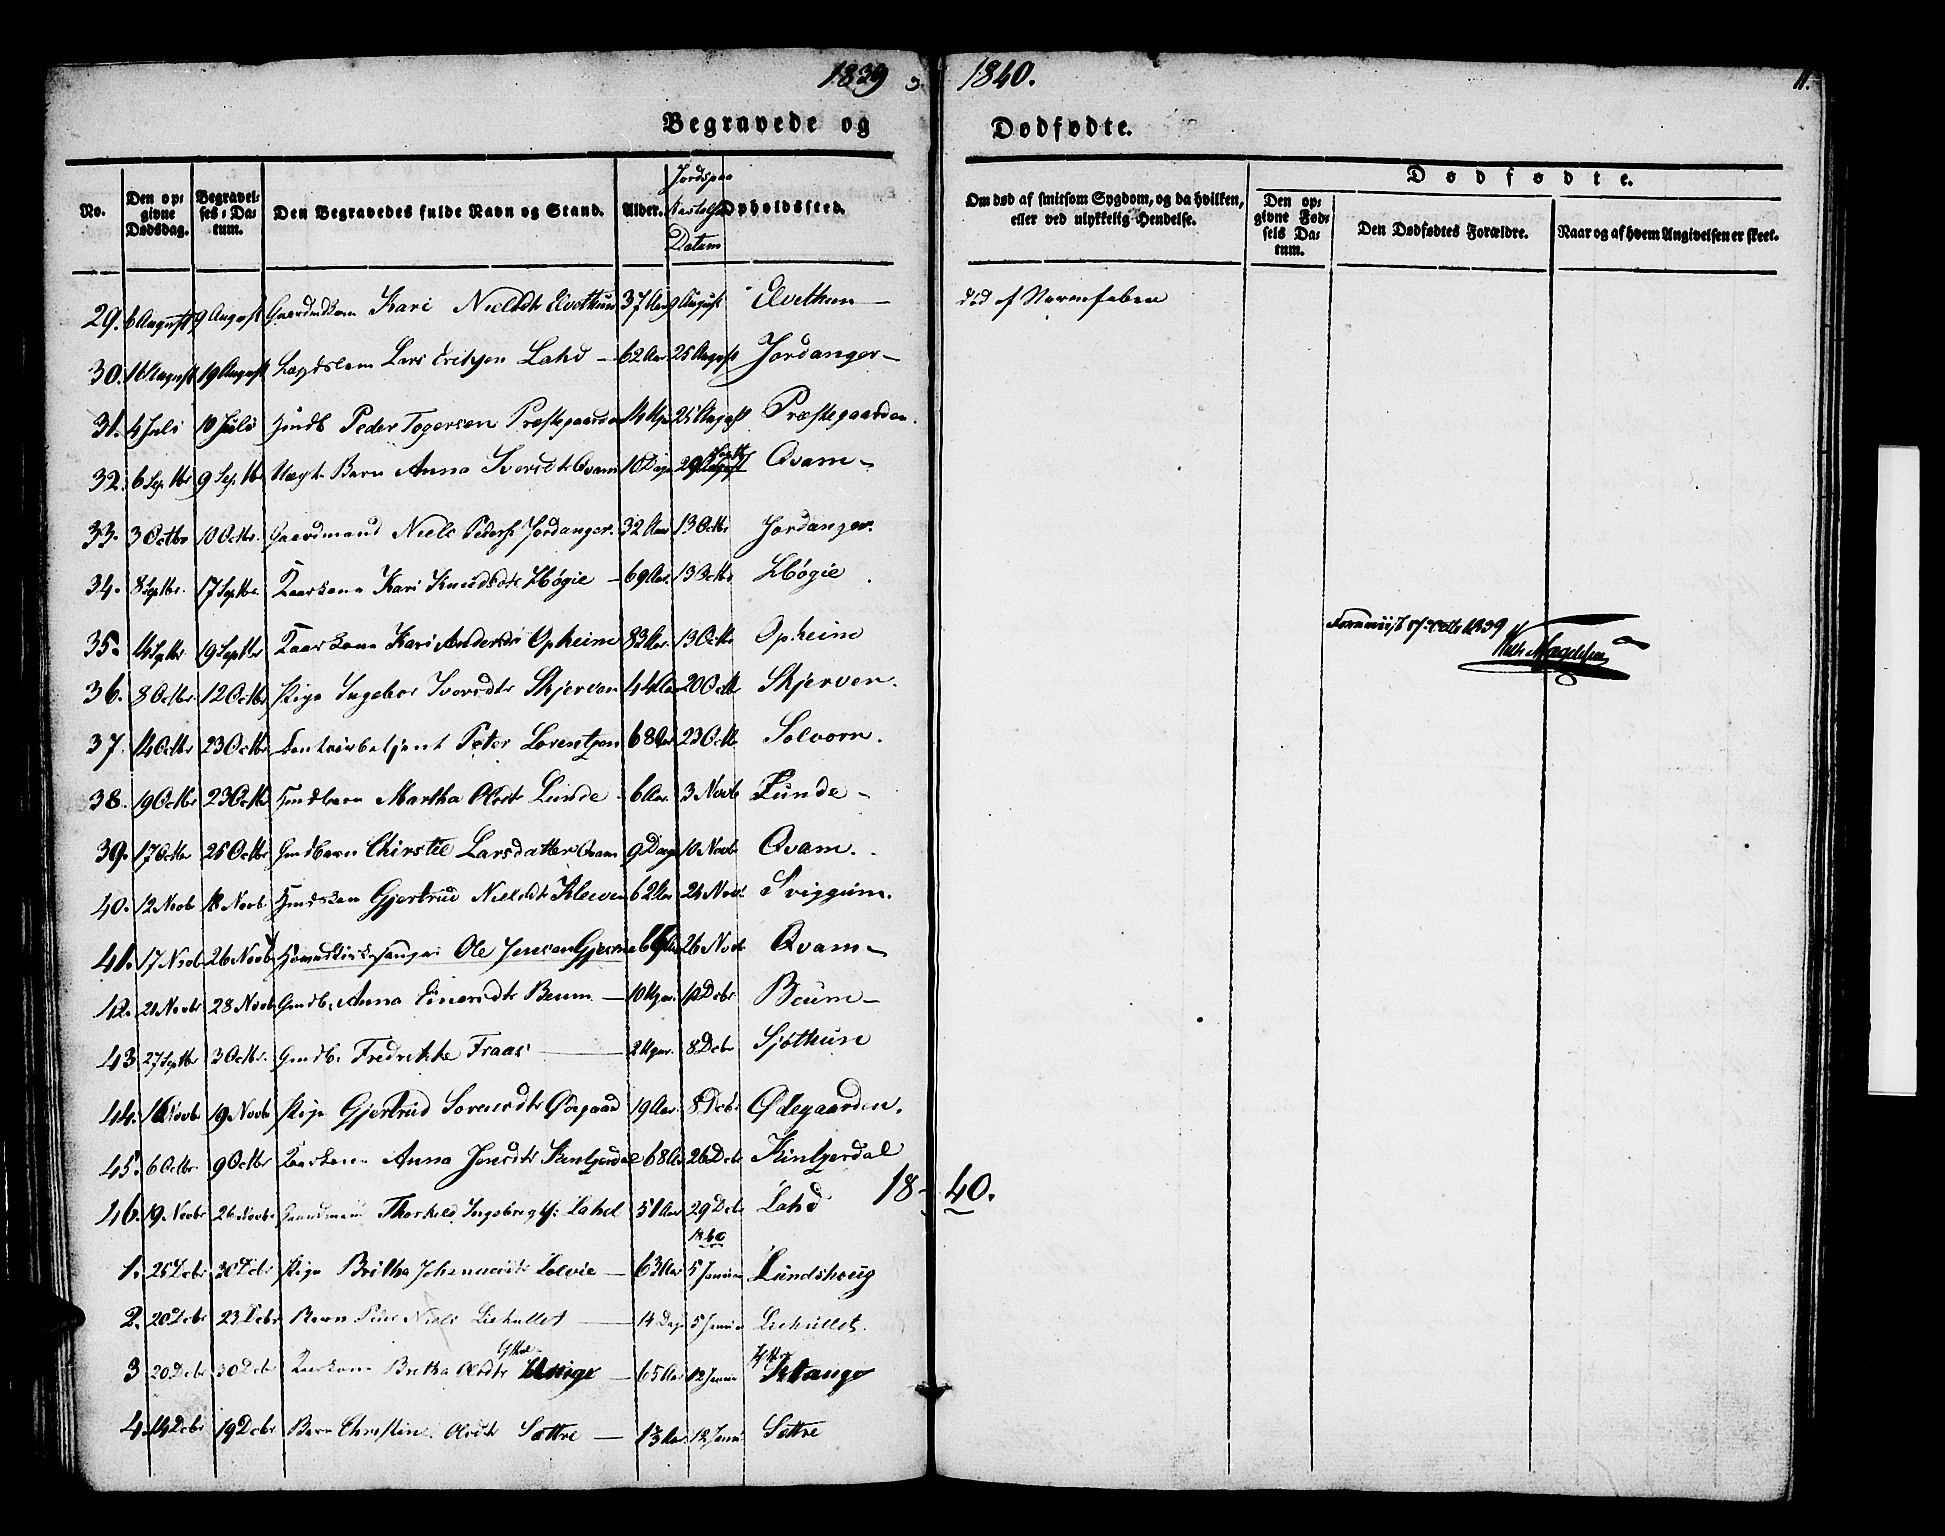 1839 1840. 11.
Begravede og Dødfødte.
No. Den opgivne Dødsdag. Begravelses-Datum. Den Begravedes fulde Navn og Stand. Alder. Jordspaa Datum Opholdssted. Om død af smitsom Sygdom, og da hvilken, eller ved ulykkelig Hendelse. Dødfødte. Den opgivne Fødsels Datum. Den Dødfødtes Forældre. Naar og af hvem Angivelsen er skeet.
29. 6 August 9 August Kari Nielsdtr Elvethun 37 Aar 9 August Elvethun – død af
30. 16 August 19 August Lars Erichsen Lahd – 62 Aar 25 August Jordanger –
31. 4 Juli 10 Juli Peder Togersen 25 August Præstegaarden.
32. 6 Septbr 9 Septbr Barn Anna Iversdtr Qvam 10 Dage 29 Septbr Qvam –
33. 3 Octbr 10 Octbr. Gaardmand Niels Peders: Jordanger. 32 Aar 13 Octbr Jordanger.
34. 8 Septbr. 17 Septbr. Kaarkone Kari Knudsdtr Høgie – 69 Aar. 13 Octbr Høgie
35. 14 Septbr 19 Septbr Kaarkone Kari Andersdtr Opheim 83 Aar. 13 Octbr Opheim
17 Octb 1839
36. 8 Octbr 12 Octbr Pige Ingebor Iversdtr Skjerven 44 Aar 20 Octbr Skjerven.
37. 14 Octbr 23 Octbr Peter Lorentzen 68 Aar 23 Octbr Solvorn.
38. 19 Octbr 23 Octbr Martha Olsdtr Lunde – 6 Aar. 3 Novb Lunde –
39. 17 Octbr 25 Octbr Chirstie Larsdatter Qvam 9 Dage 10 Novb Qvam.
40. 12 Novb 18 Novb Gjertrud Nielsdtr Kleven 62 Aar 24 Novb. Sviggum.
41. 17 Novb 26 Novb Ole Jensen Gjesme 26 Novb Qvam –
42. 21 Novbr 28 Novb Gmdb. Anna Einersdtr Beum – Debr Beum –
43. 27 Septbr 3 Octbr. Gmdb. Fredrikke Fraas 8 Debr Sjøthun
44. 16 Novb 19 Novb Pige Gjertrud Sorensdtr Ødegaard 19 Aar. 8 Debr Ødegaarden.
45. 6 Octbr 9 Octbr Kaarkone Anna Jensdtr Kintzerdal 68 Aar 26 Debr Kintzerdal
1840.
46. 19 Novbr 26 Novbr. Thorkild Ingebregts: Lahd 51 Aar 29 Debr Lahd
1840
1. 25 Debr 30 Debr Pige Britha Johannesdtr – 63 Aar 5 Januar Lundshoug
2. 20 Debr 23 Debr Barn Peder Niels: Liehullet 14 Dage 5 Januar Liehullet.
3 20 Debr 30 Debr Kaarkone Britha Olsdtr – 65 Aar 12 Januar
4. 14 Debr 19 Debr Barn Christine Olsdtr Sættre – 12 Janu Sættre